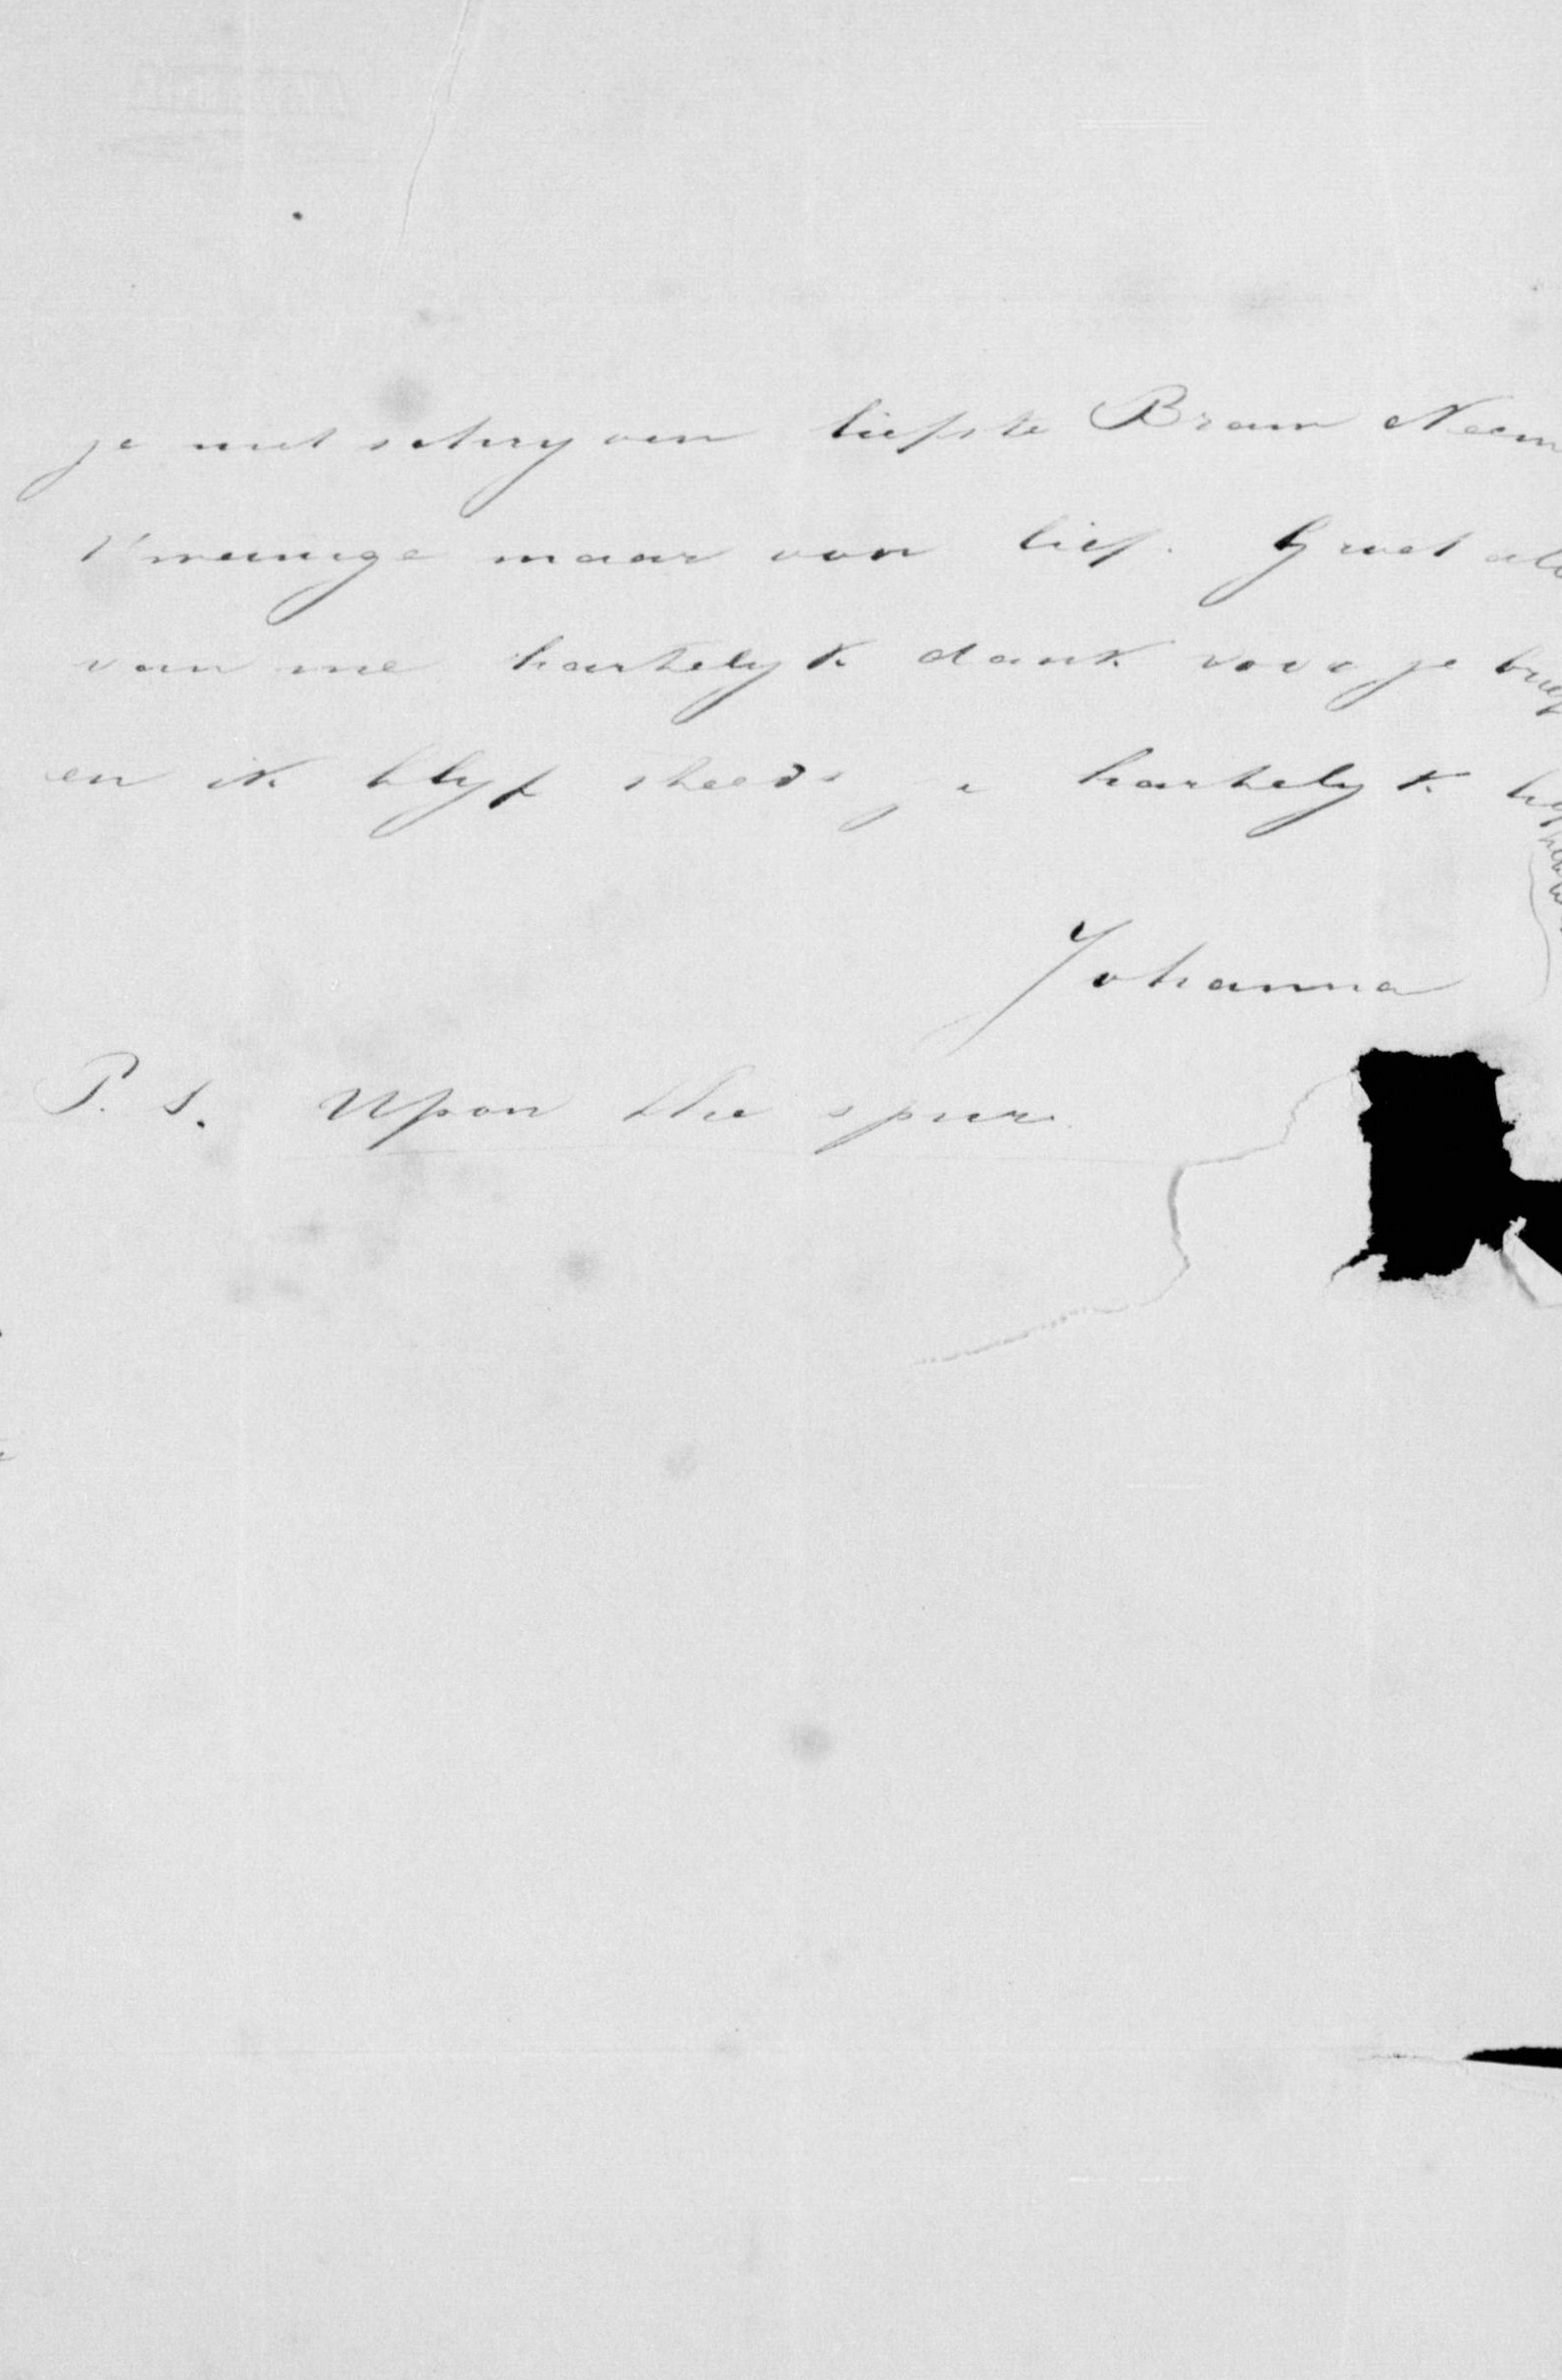 je niet schryven liefste Bram Neem
't weinige maar voor lief. Groet alle
van me hartelyk dank voor je brief
en ik blyf steeds je hartelyk
Johanna
P. S. Upon the spur.